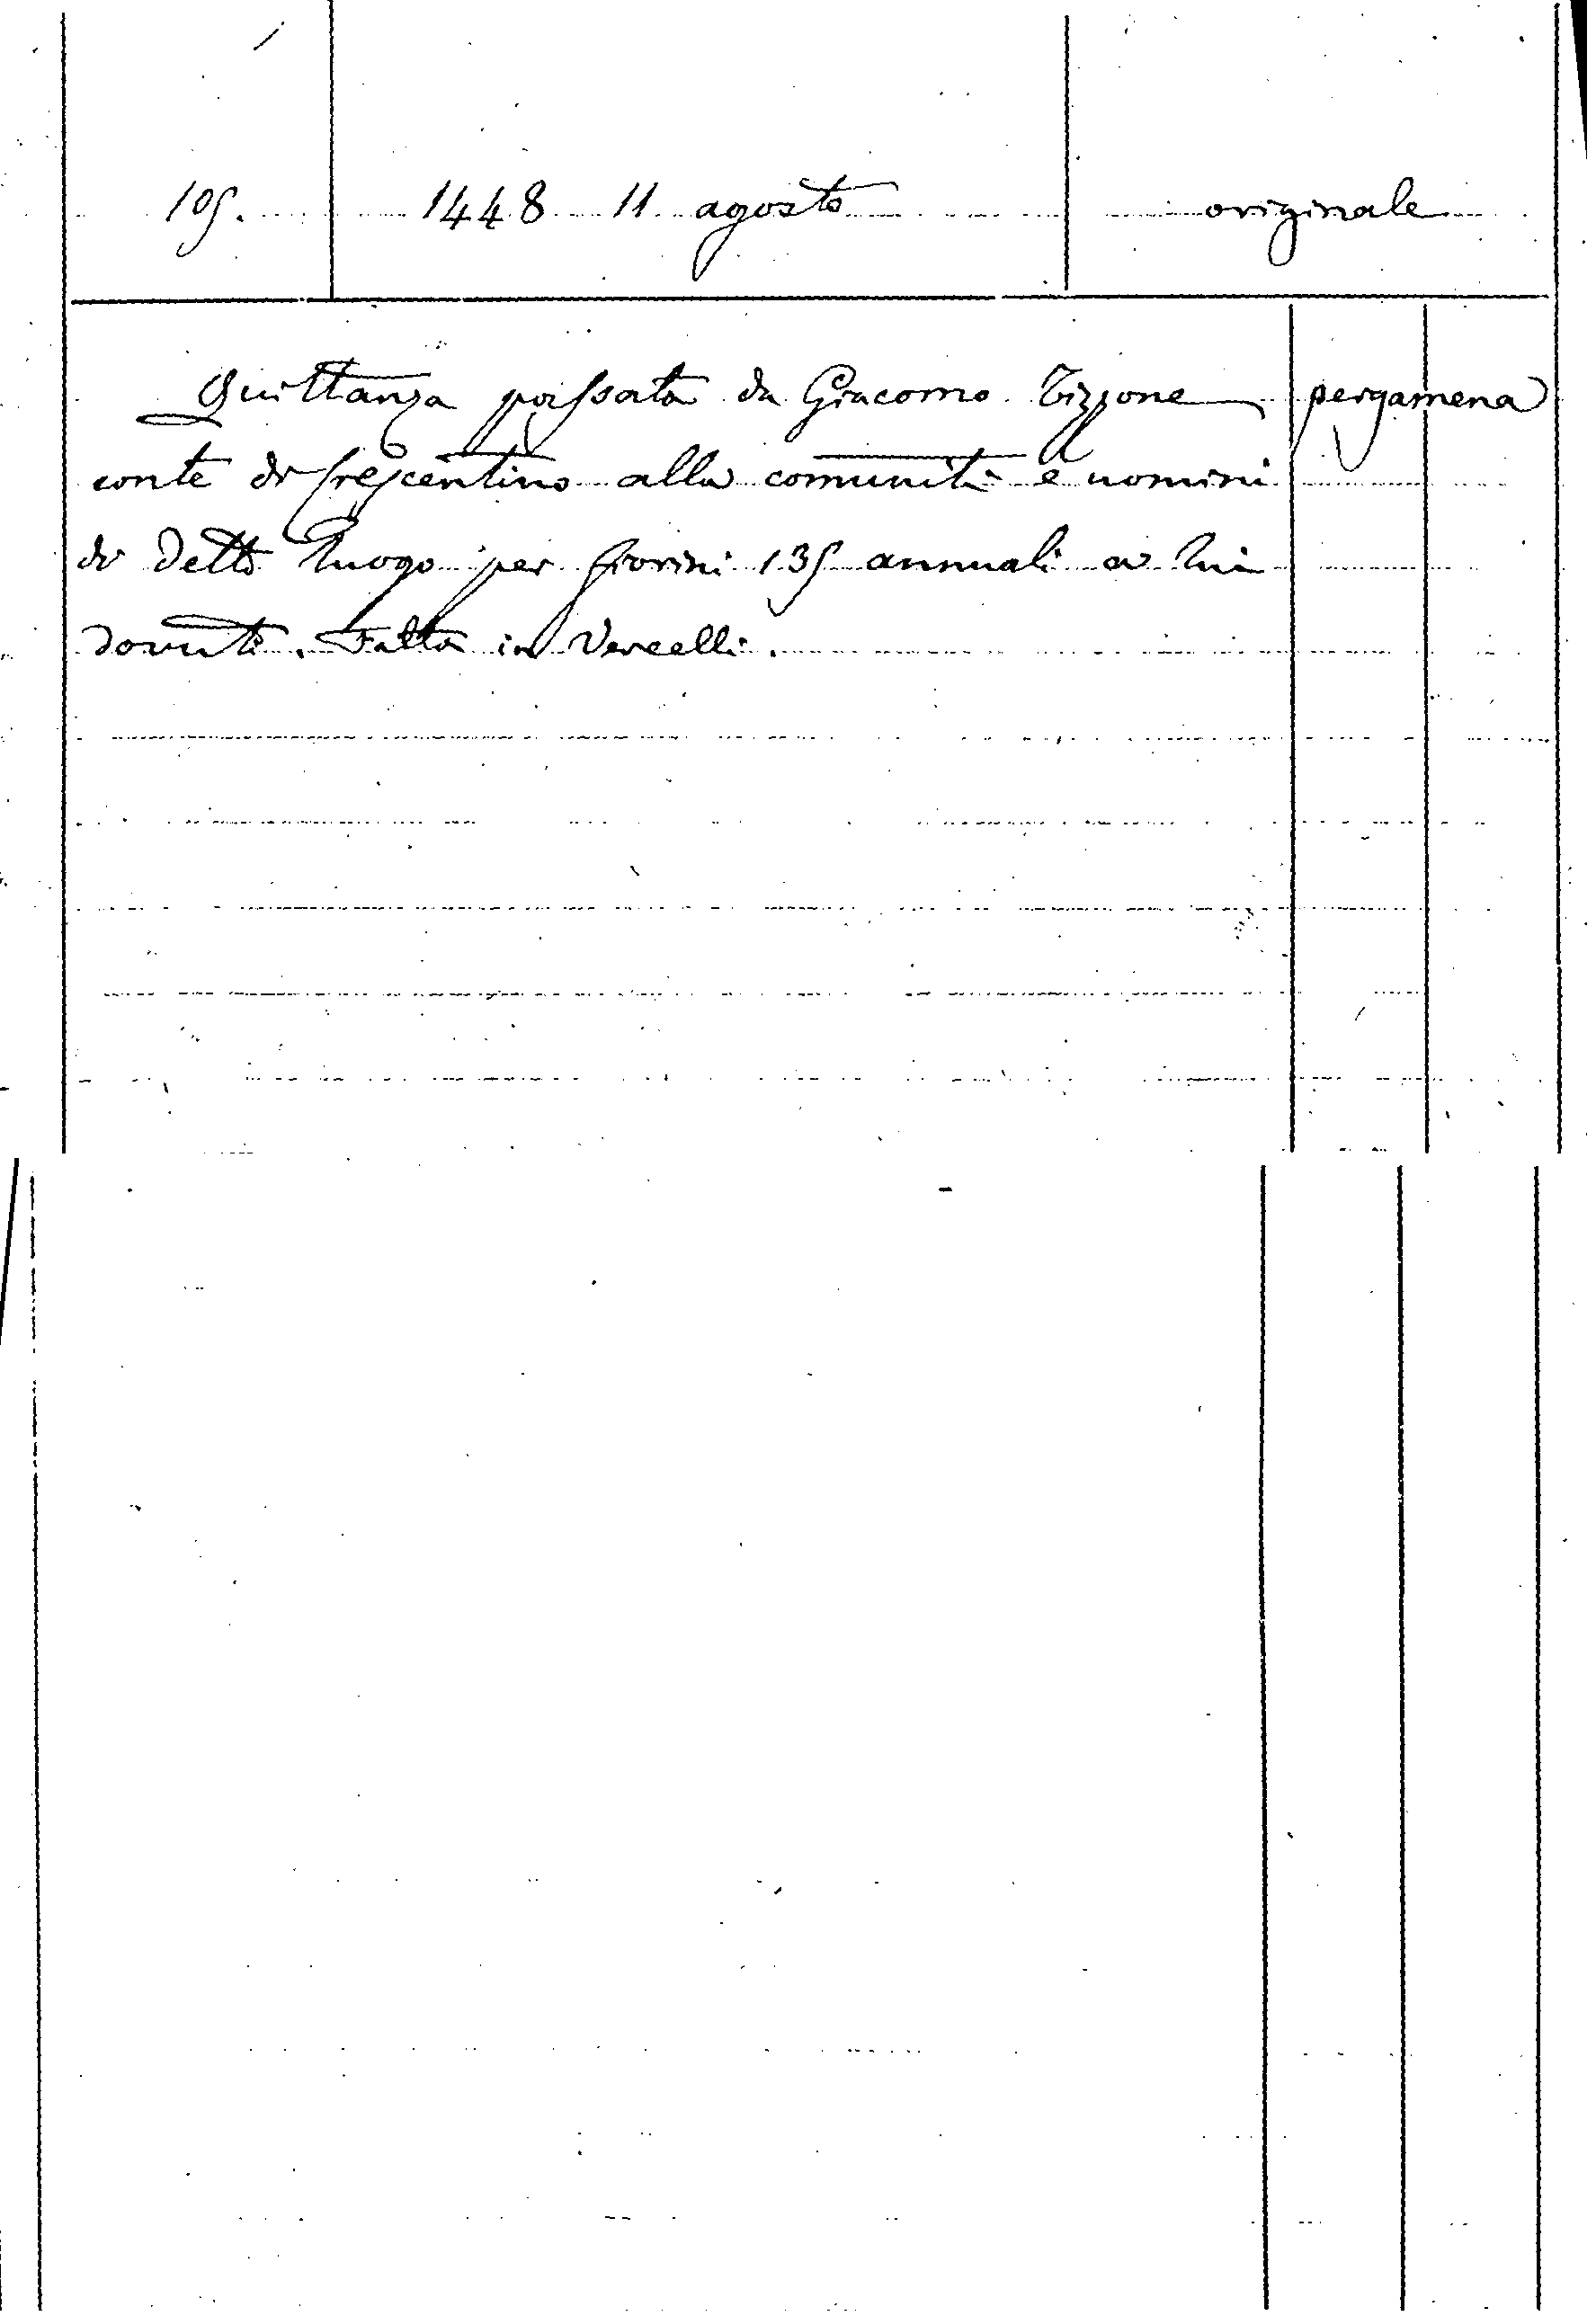 105. 1448 11 agosto originale
Quittanza passata da Giacomo Tizzone pergamena
conte di Crescentino alla comunità e uomini
di detto luogo per fiorini 135 annuali a lui
dovuti. Fatta in Vercelli.